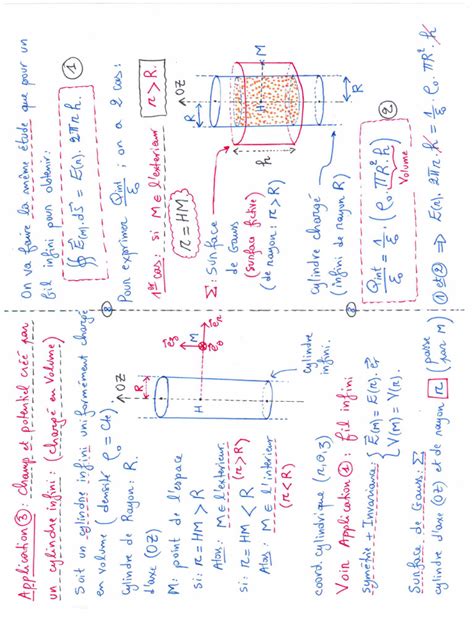 Application ③ : champ et potentiel créé par
un cylindre infini : (chargé en Volume)
Soit un cylindre infini uniformément chargé
en volume ( densité ρo = Cte )
cylindre de Rayon : R.
d'axe (OZ)
M : point de l'espace
si : r = HM > R
Alors : M ∈ l'exterieur (r > R)
si : r = HM < R
Alors : M ∈ l'intérieur
(r < R)
R
OZ
H
M
cylindre
infini.
coord. cylindrique (r, θ, z)
Voir Application ① : fil infini
symétrie + Invariance :
E(M) = E(r). er
V(M) = V(r).
Surface de Gauss : Σ
cylindre d'axe (OZ) et de rayon r (passe par M)
On va faire la même étude que pour un
fil infini pour obtenir :
∯ E(M).dS = E(r). 2πr h. ①
Pour exprimer Qint/ε0 : on a 2 cas :
1er cas : si M ∈ l'exterieur r > R.
r = HM
Σ : Surface
de Gauss
(Surface fictive)
(de rayon : r > R)
cylindre chargé
(infini de rayon R)
R
OZ
M
H
R
h
Qint/ε0 = 1/ε0 . (ρo. πR². h) ②
Volume
① et ② ⇒ E(r). 2πr. h = 1/ε0 ρo. πR². h